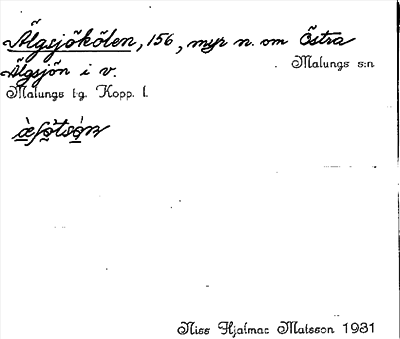 Älgsjökölen, 156, myr n. om Östra
Älgsjön i v.
Malungs s:n
Malungs tg. Kopp. l.
Niss Hjalmar Matsson 1931